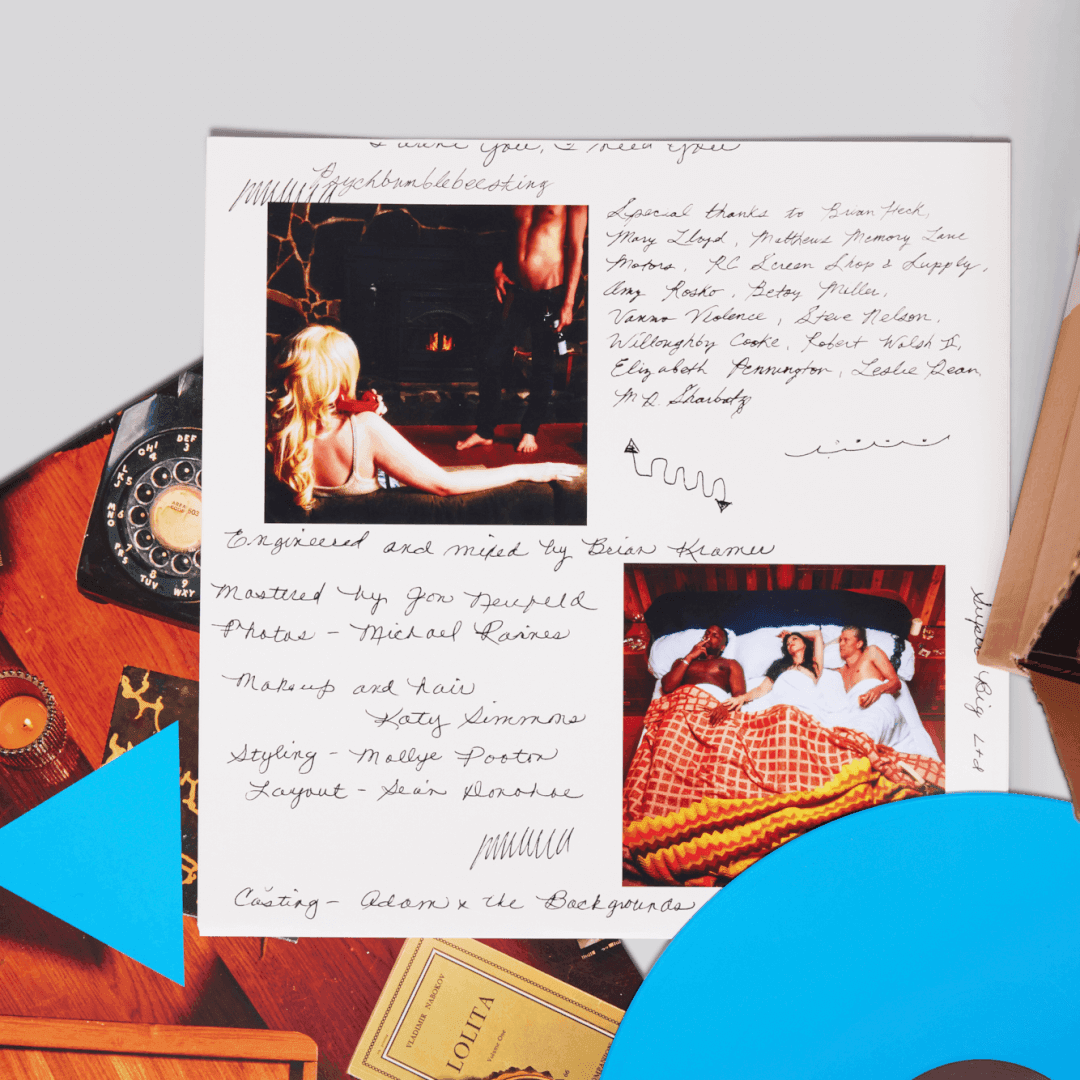 I want You, I need You
Psychbumblebeesting
Special thanks to Brian Heck,
Mary Lloyd, Matthews Memory Lane
Motors, RC Screen Shop & Supply,
Amy Rosko, Betsy Miller,
Vanna Violence, Steve Nelson,
Willoughby Cooke, Robert Walsh II,
Elizabeth Pennington, Leslie Dean
M.D. Sharbatz
Engineered and mixed by Brian Kramer
Mastered by Jon Neufeld
Photos - Michael Raines
Makeup and hair
Katy Simmons
Styling - Mollye Pooton
Layout - Seán Donohoe
Casting - Adam x the Backgrounds
Super Big Ltd
GHI
4
DEF
3
JKL
5
MNO
6
PRS
7
TUV
8
WXY
9
AREA 503
VLADIMIR NABOKOV
LOLITA
Volume One
66
COMPANION